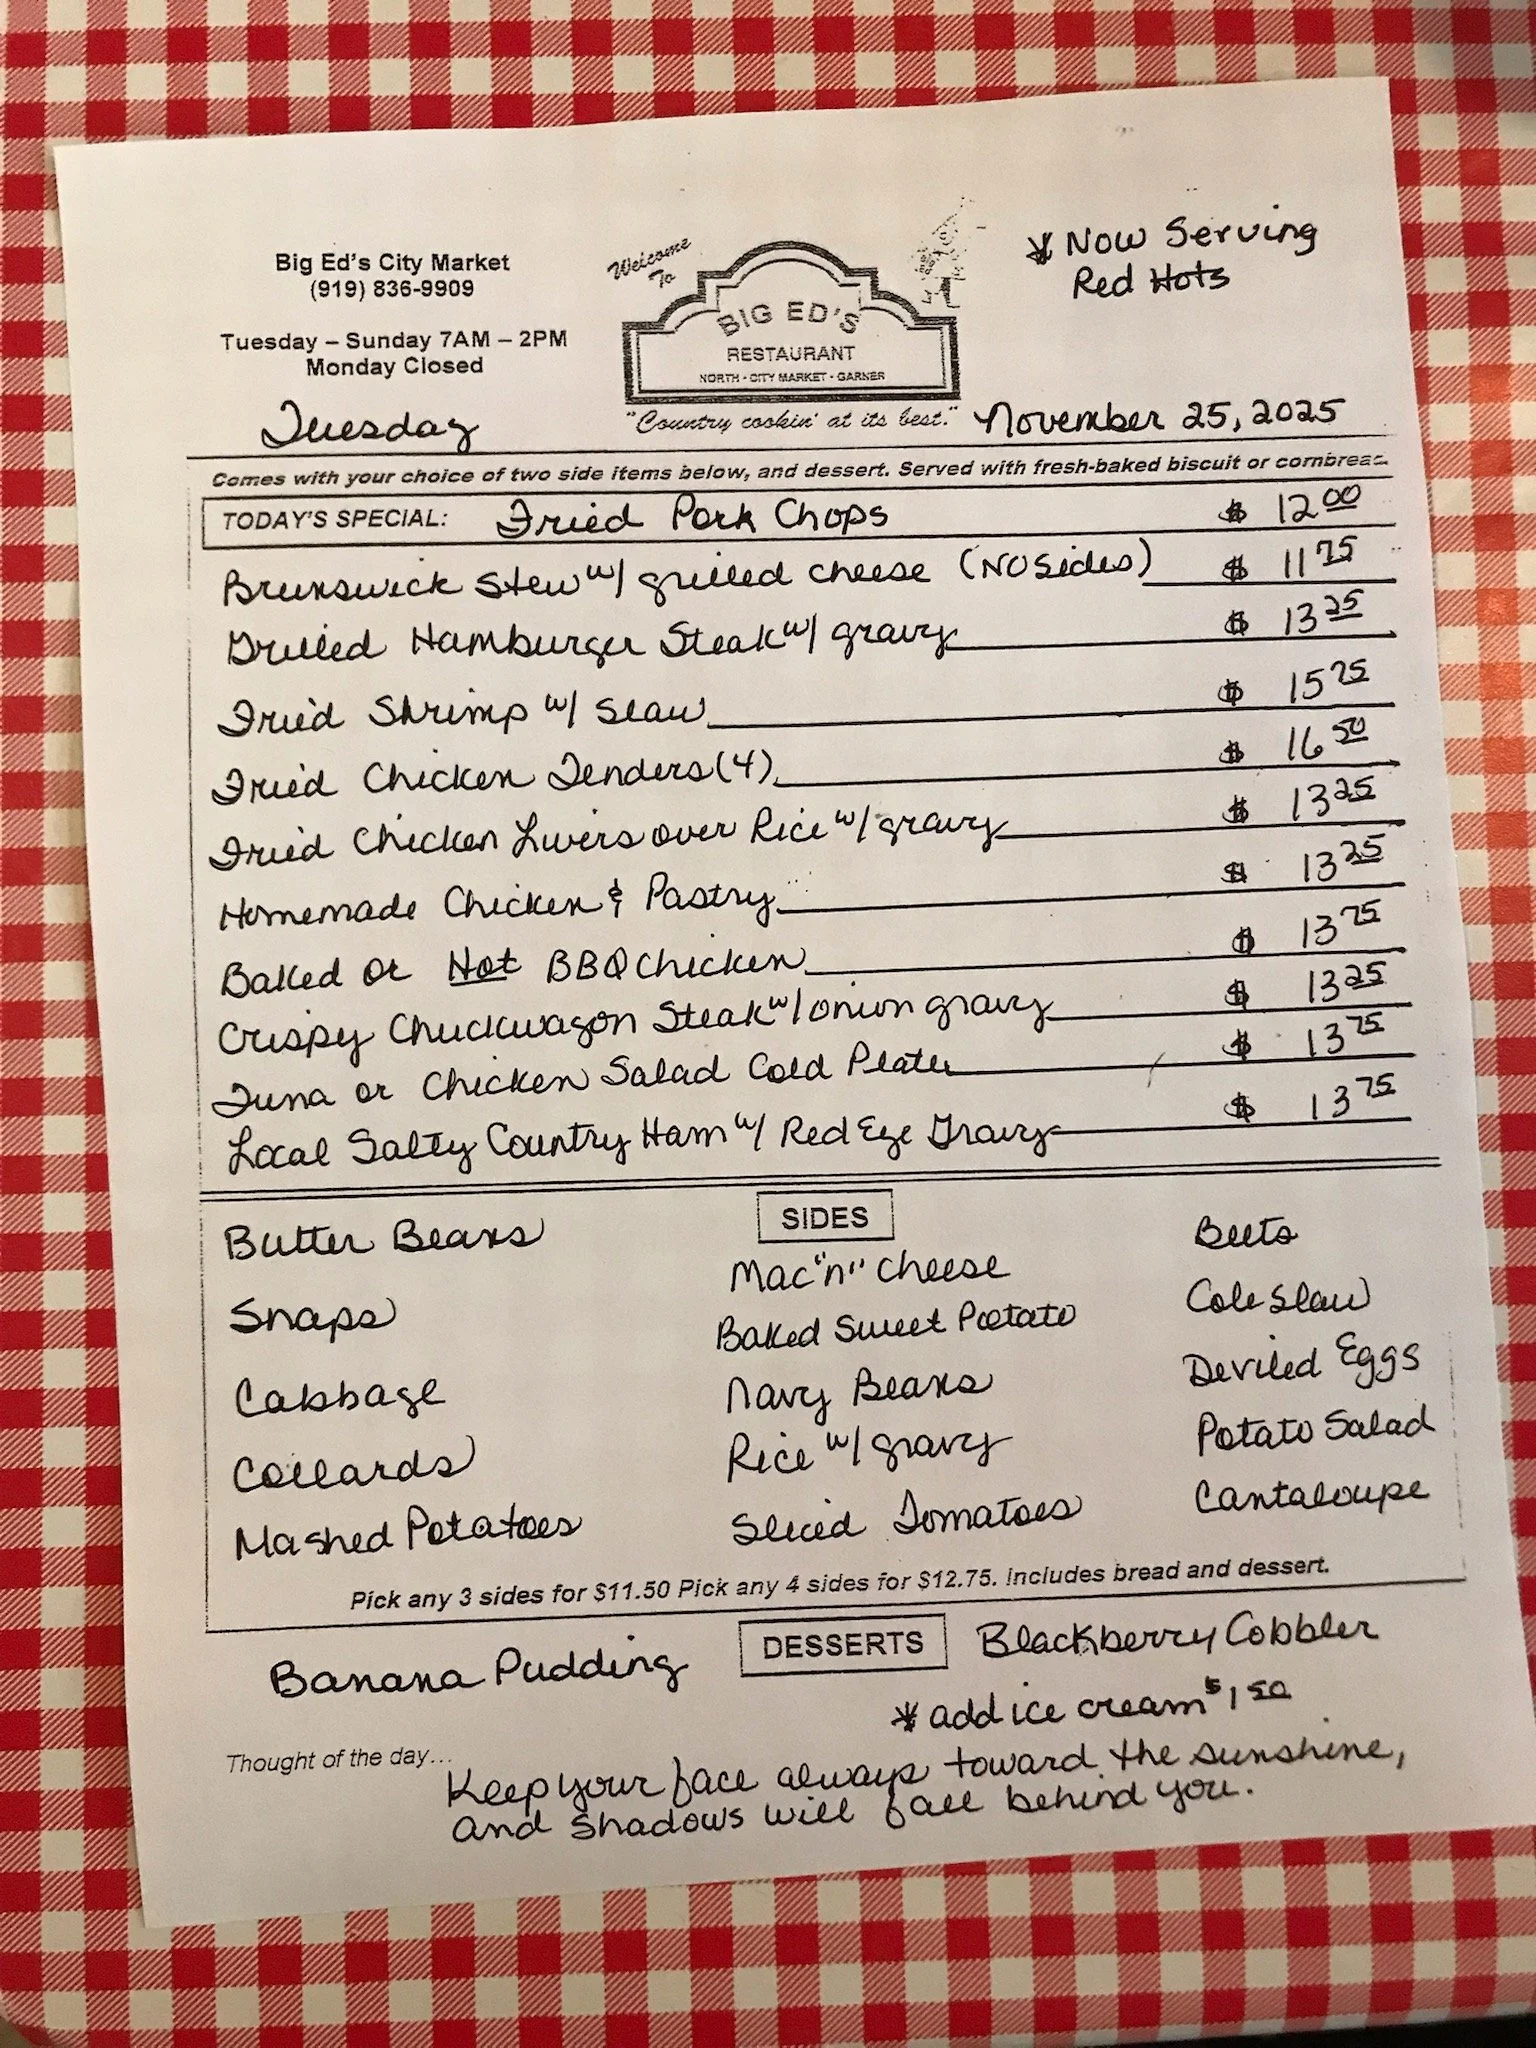 Big Ed's City Market
(919) 836-9909
Tuesday – Sunday 7AM – 2PM
Monday Closed
Welcome
To
BIG ED'S
RESTAURANT
NORTH - CITY MARKET - GARNER
"Country cookin' at its best."
* Now Serving
Red Hots
Tuesday
November 25, 2025
Comes with your choice of two side items below, and dessert. Served with fresh-baked biscuit or cornbread.
TODAY'S SPECIAL: Fried Pork Chops $ 12.00
Brunswick Stew w/ grilled cheese (NO sides) $ 11 75
Grilled Hamburger Steak w/ gravy $ 13 25
Fried Shrimp w/ slaw $ 15 75
Fried Chicken Tenders (4) $ 16 50
Fried Chicken Livers over Rice w/ gravy $ 13 25
Homemade Chicken & Pastry $ 13 25
Baked or Hot BBQ Chicken $ 13 75
Crispy Chuckwagon Steak w/ onion gravy $ 13 25
Tuna or Chicken Salad Cold Plate $ 13 75
Local Salty Country Ham w/ Red Eye Gravy $ 13 75
SIDES
Butter Beans
Snaps
Cabbage
Collards
Mashed Potatoes
Mac "n" Cheese
Baked Sweet Potato
Navy Beans
Rice w/ gravy
Sliced Tomatoes
Beets
Cole Slaw
Deviled Eggs
Potato Salad
Cantaloupe
Pick any 3 sides for $11.50 Pick any 4 sides for $12.75. Includes bread and dessert.
DESSERTS
Banana Pudding
Blackberry Cobbler
* add ice cream $1 50
Thought of the day... Keep your face always toward the sunshine,
and shadows will fall behind you.